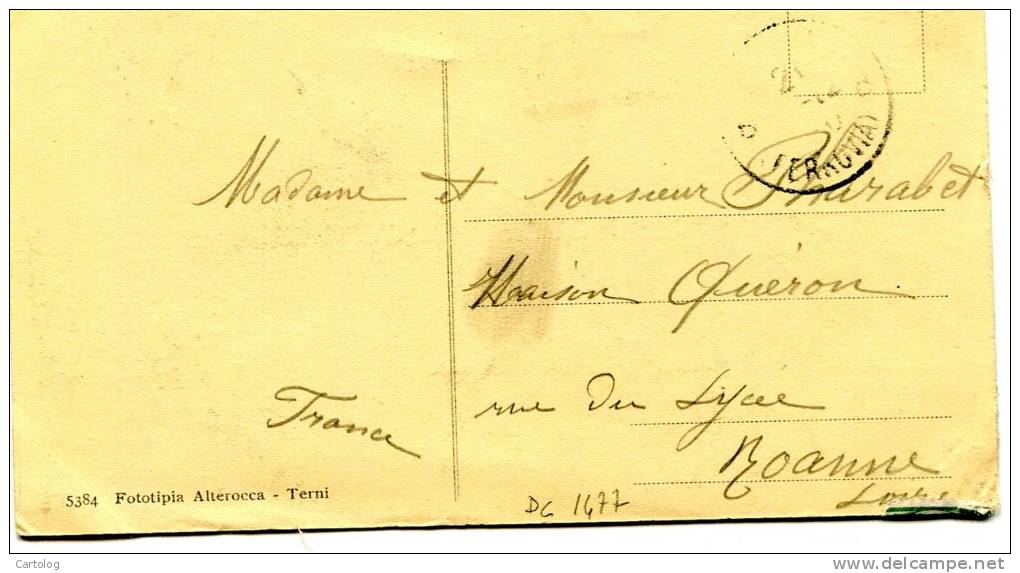 (FERROVIA)
Madame et Monsieur Pharabet
Maison Quéron
rue du Lycée
France
Roanne
Loire
5384 Fototipia Alterocca - Terni
DG 1477
Cartolog
delcampe.net